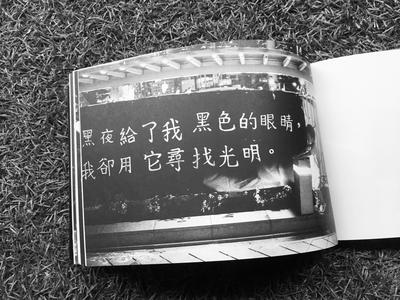 黑夜給了我 黑色的眼睛，
我卻用 它尋找光明。